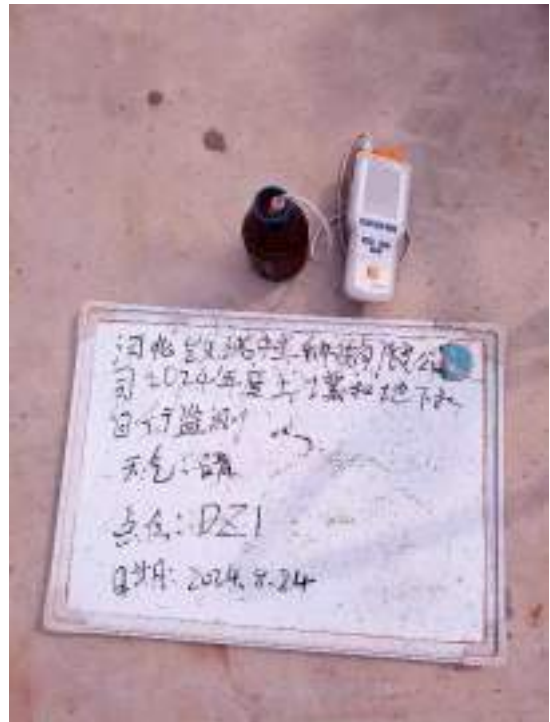 河北
限公
司2024年度土壤和地下水
自行监测
天气：晴
点位：DZ1
日期：2024.8.24